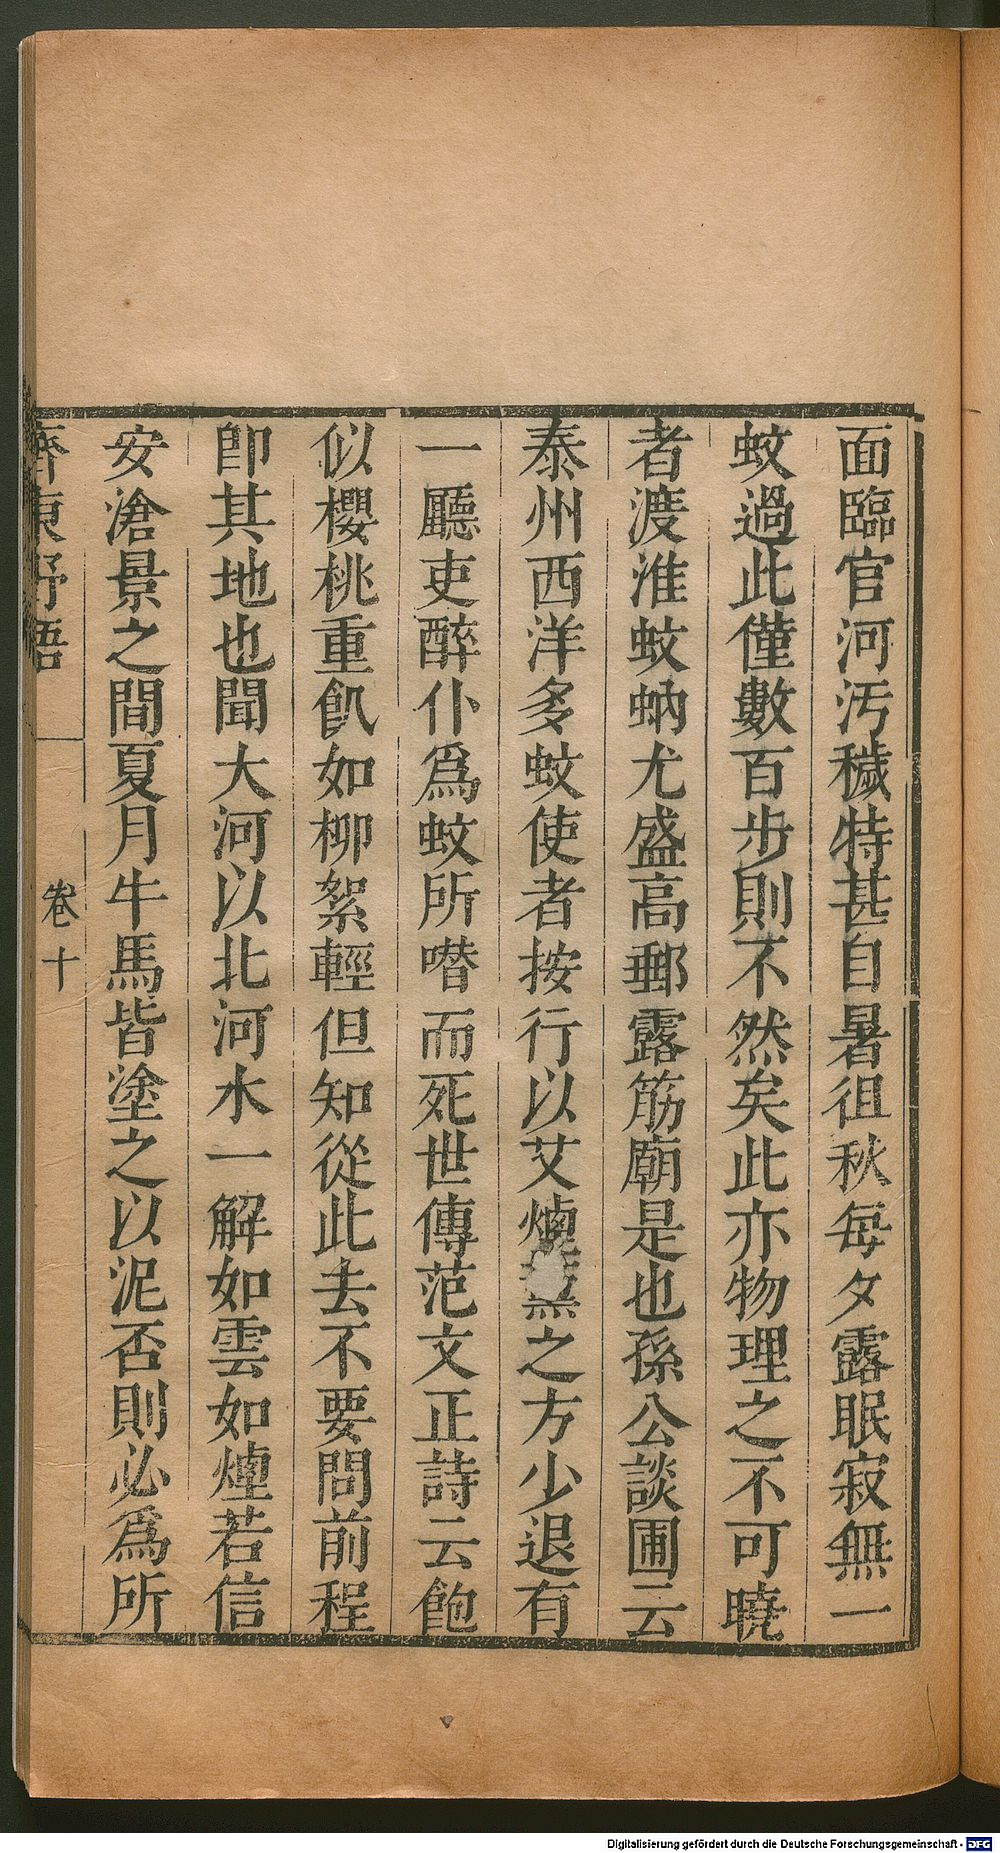 面臨官河汚穢特甚自暑徂秋每夕露眠寂無一
蚊過此僅數百步則不然矣此亦物理之不可曉
者渡淮蚊蚋尤盛高郵露筋廟是也孫公談圃云
泰州西洋多蚊使者按行以艾煙熏之方少退有
一廳吏醉仆爲蚊所噆而死世傳范文正詩云飽
似櫻桃重飢如柳絮輕但知從此去不要問前程
卽其地也聞大河以北河水一解如雲如煙若信
安滄景之間夏月牛馬皆塗之以泥否則必爲所
齊東野語 卷十
Digitalisierung gefördert durch die Deutsche Forschungsgemeinschaft - DFG